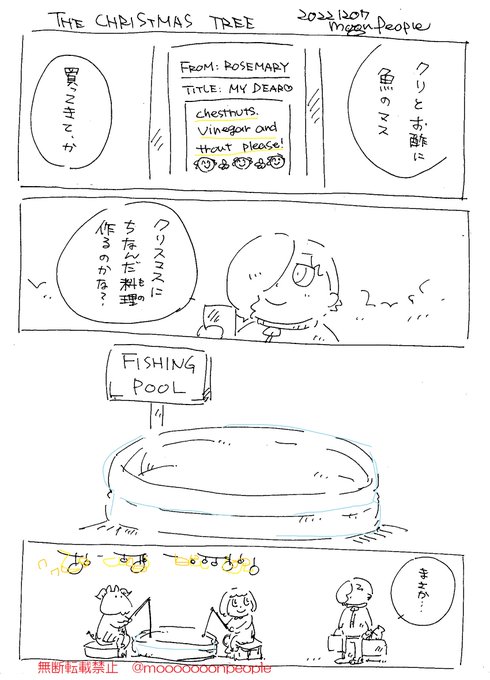 THE CHRISTMAS TREE
20221207
moonpeople
クリとお酢に
魚のマス
FROM: ROSEMARY
TITLE: MY DEAR♡
chestnuts.
Vinegar and
thout please!
買ってきて、か
クリスマスに
ちなんだ料理
もの
作るのかな？
FISHING
POOL
まさか…
無断転載禁止 @mooooooonpeople